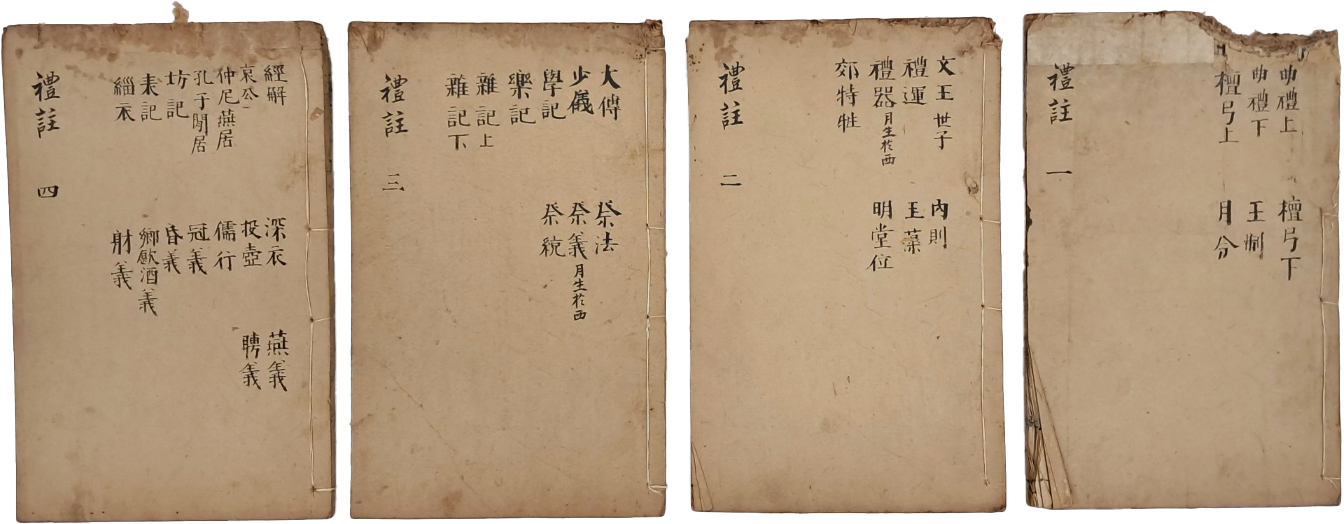 曲禮上
曲禮下
檀弓上
檀弓下
王制
月令
禮註 一
文王世子
禮運
禮器月生於西
郊特牲
內則
玉藻
明堂位
禮註 二
大傳
少儀
學記
樂記
雜記上
雜記下
祭法
祭義月生於西
祭統
禮註 三
經解
哀公
仲尼燕居
孔子閒居
坊記
表記
緇衣
深衣
投壺
儒行
冠義
昏義
鄉飲酒義
射義
燕義
聘義
禮註 四